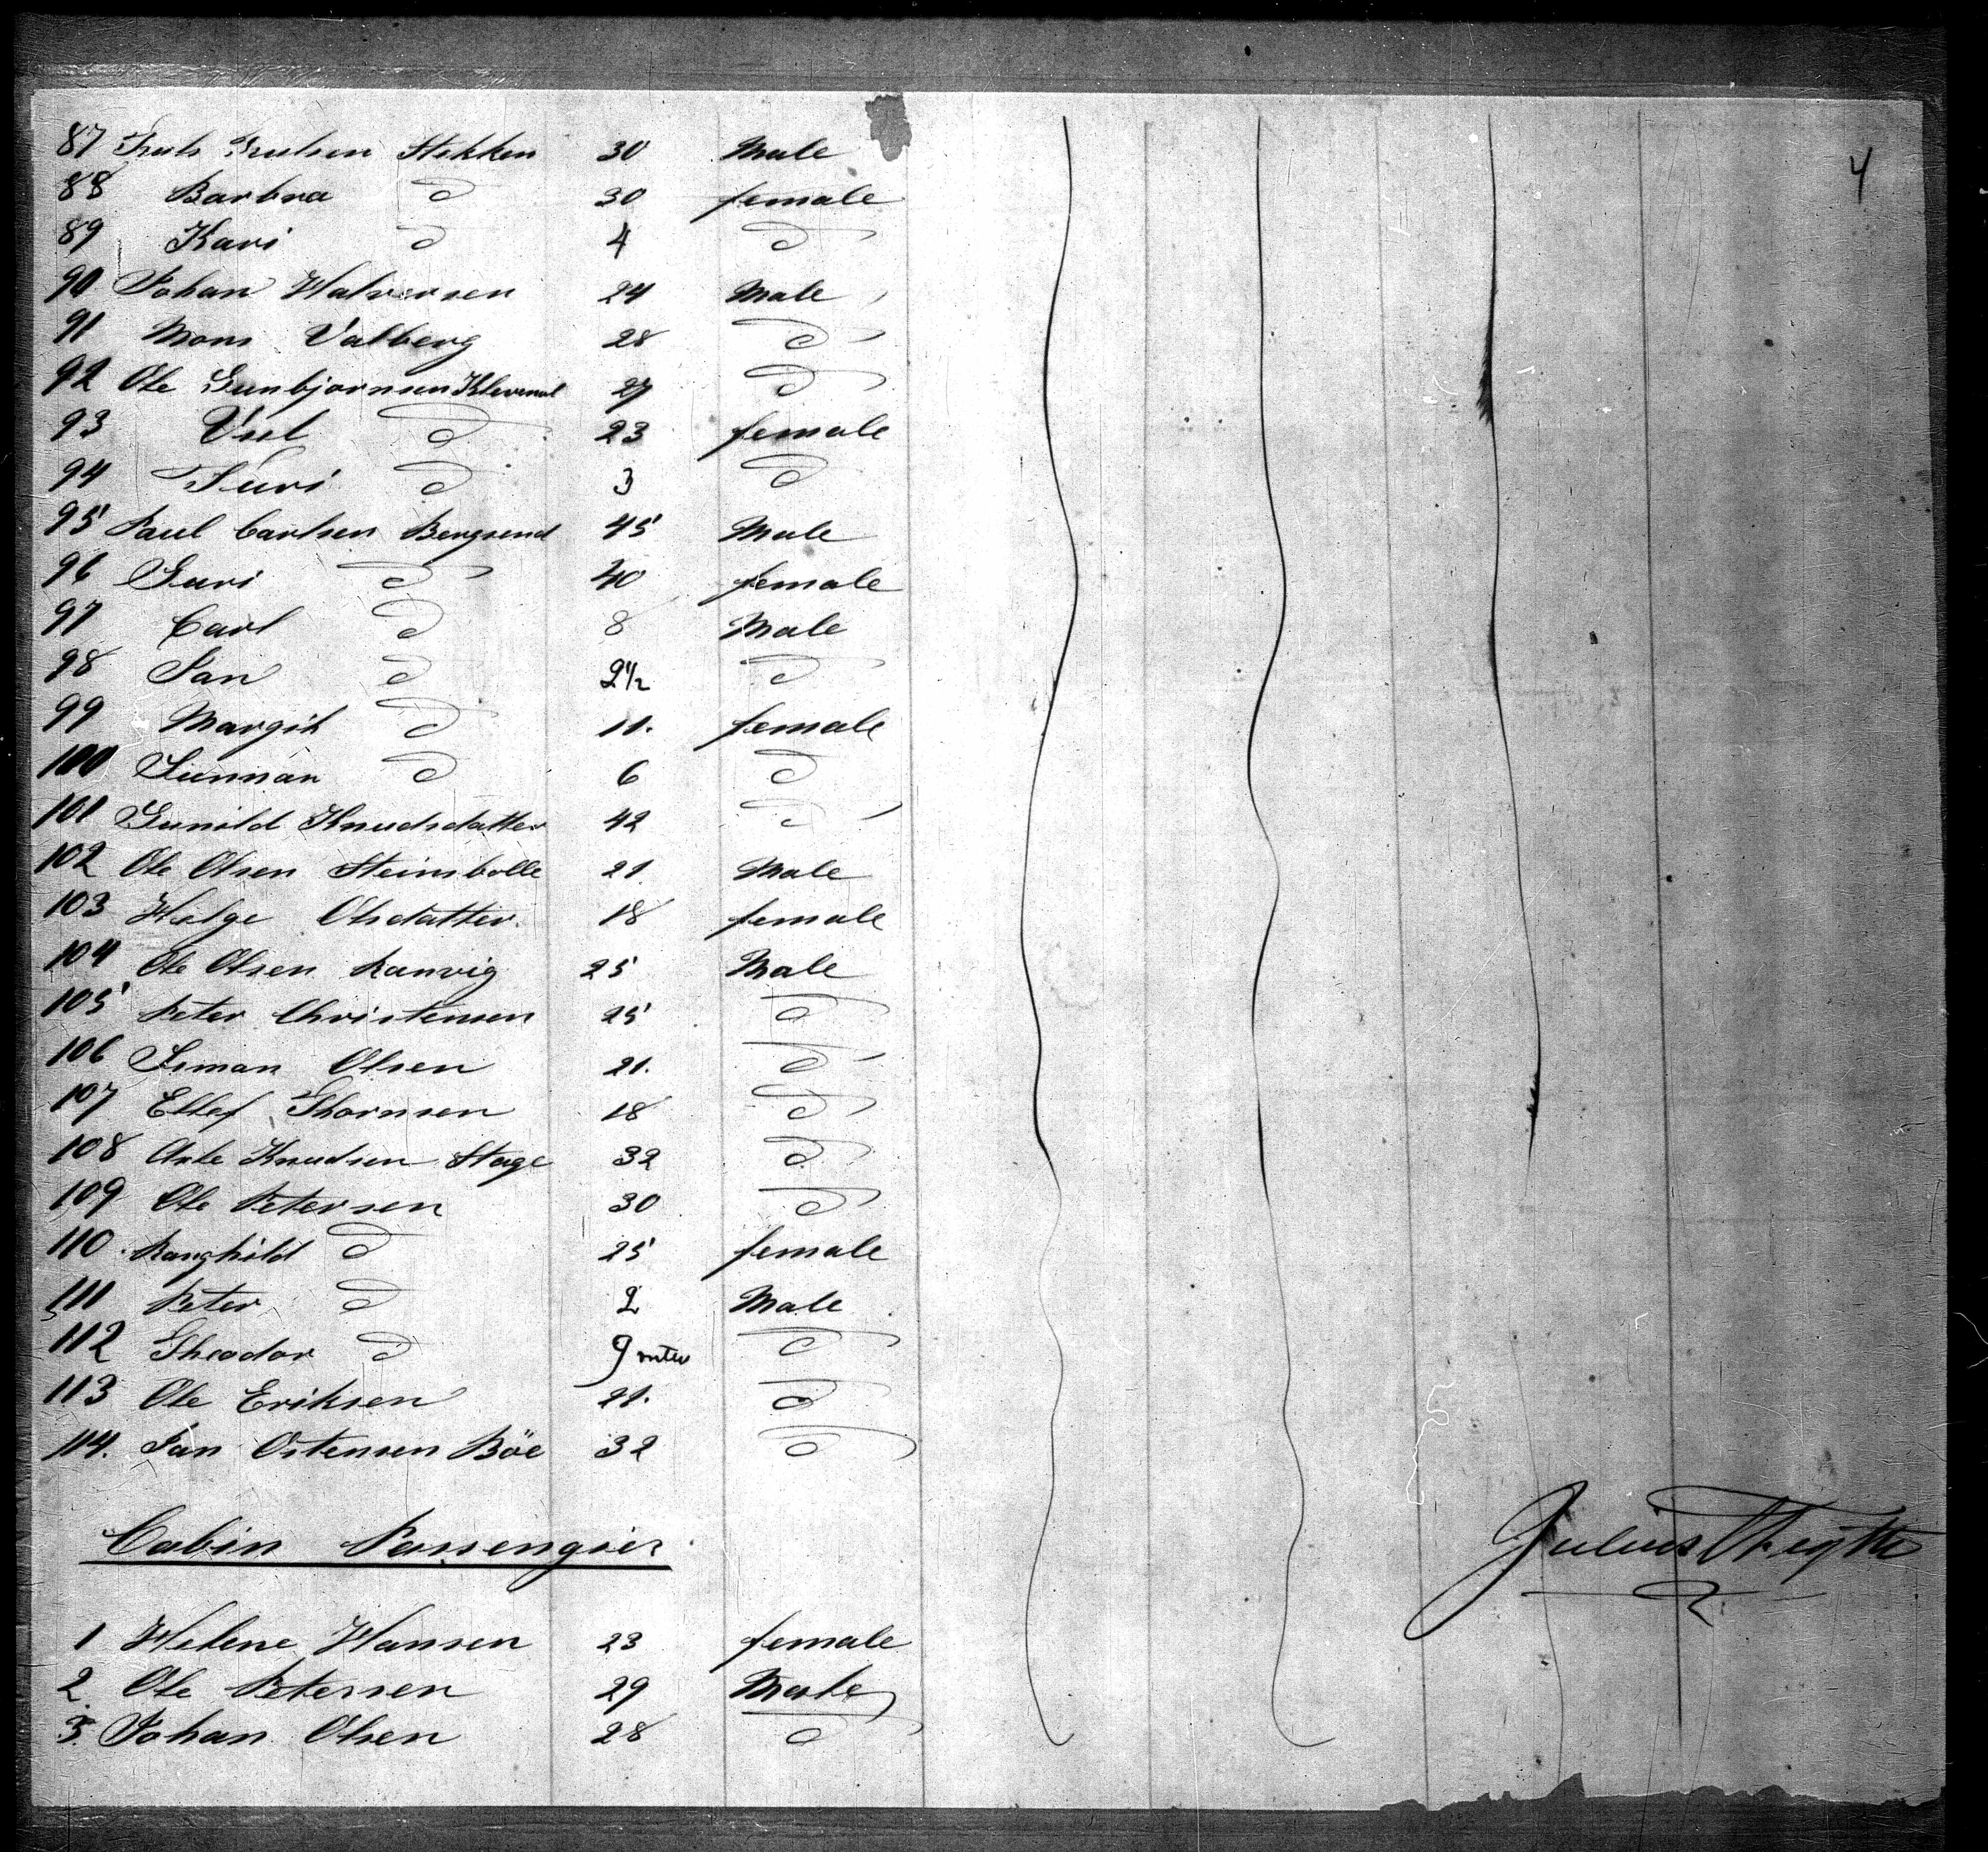 4
87 Truls Trulsen Stekken 30 Male
88 Barbra d 30 female
89 Kari d 4 d
90 Johan Halvorsen 24 Male
91 Mons Valberg 28 d
92 Ole Gunbjornsen 27 d
93 d 23 female
94 Turi d 3 d
95 Paul Carlsen Bergsend 45 Male
96 Guri d 40 female
97 Carl d 8 Male
98 Jan d 2 1/2 d
99 Margit d 11. female
100 Gunnan d 6 d
101 Gunild Knudsdatter 42 d
102 Ole Olsen Steinsbolle 21 Male
103 Helge Olsdatter. 18 female
104 Ole Olsen Ranvig 25 Male
105 Peter Christensen 25 d
106 Siman Olsen 21. d
107 Ellef Thornsen 18 d
108 Asle Knudsen Stage 32 d
109 Ole Petersen 30 d
110 Ranghild d 25 female
111 Peter d 2 Male
112 Theodor d 9 d
113 Ole Eriksen 21. d
114. Jan Ostensen Böe 32 d
Cabin Passengier
Julius
1 Helene Hansen 23 female
2. Ole Petersen 29 Male
3. Johan Olsen 28 d